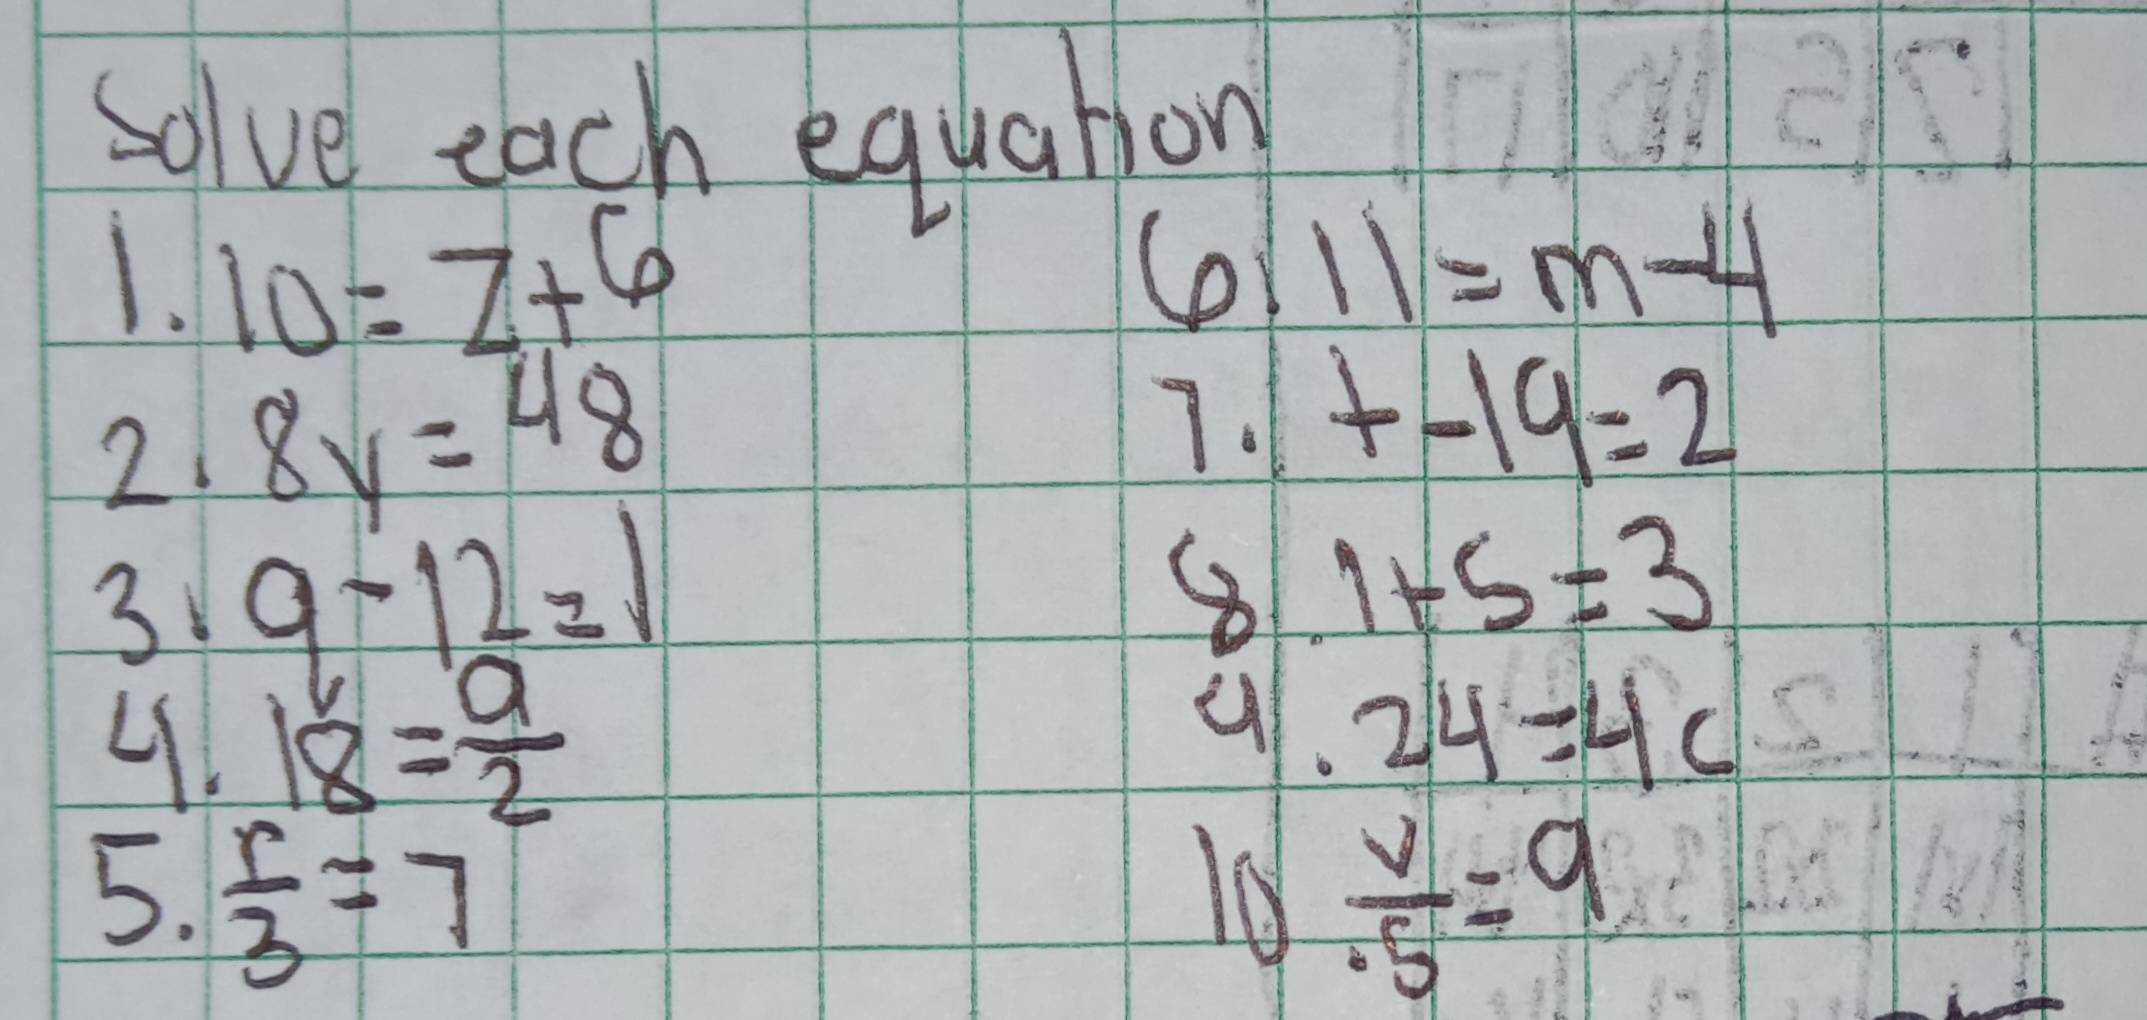 Solve each equation
1. 10 = z + 6
2. 8y = 48
3. q - 12 = 1
4. 18 = a/2
5. r/3 = 7
6. 11 = m - 4
7. t - 19 = 2
8. 1 + s = 3
9. 24 = 4c
10. v/5 = 9